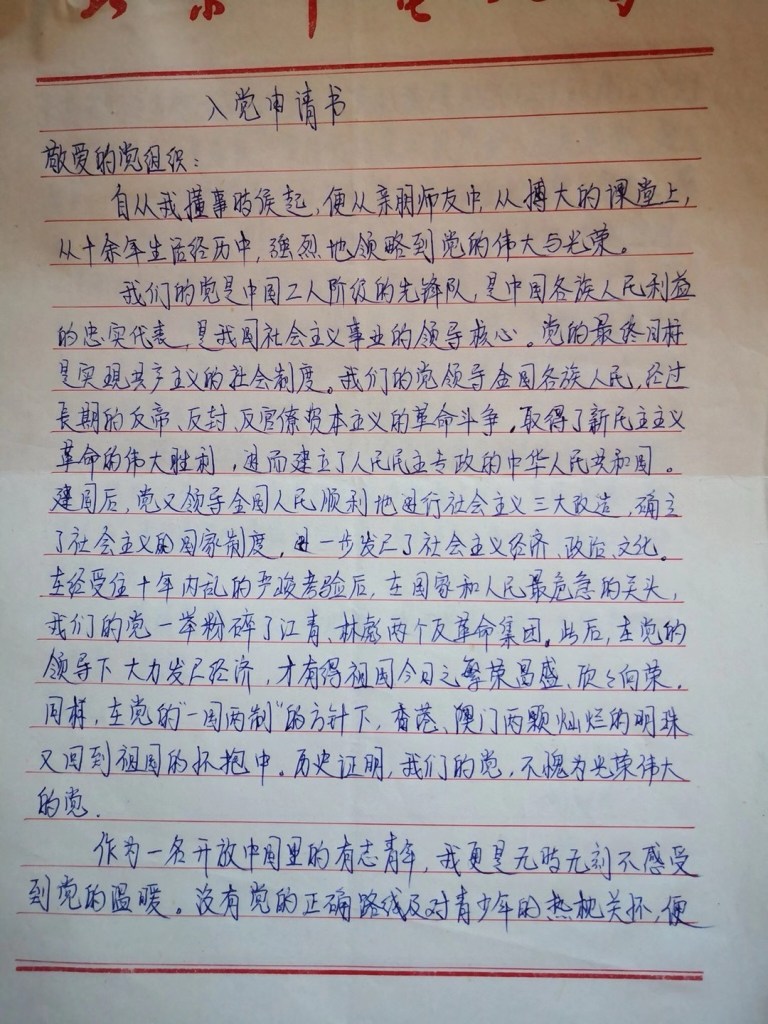 入党申请书
敬爱的党组织:
自从我懂事时侯起,便从亲朋师友中,从搏大的课堂上,
从十余年生活经历中,强烈地领略到党的伟大与光荣。
我们的党是中国工人阶级的先锋队,是中国各族人民利益
的忠实代表,是我国社会主义事业的领导核心。党的最终目标
是实现共产主义的社会制度。我们的党领导全国各族人民,经过
长期的反帝、反封、反官僚资本主义的革命斗争,取得了新民主主义
革命的伟大胜利,进而建立了人民民主专政的中华人民共和国。
建国后,党又领导全国人民顺利地进行社会主义三大改造,确立
了社会主义的国家制度,进一步发展了社会主义经济、政治、文化。
在经受住十年内乱的严峻考验后,在国家和人民最危急的关头,
我们的党一举粉碎了江青、林彪两个反革命集团。此后,在党的
领导下大力发展经济,才有得祖国今日之繁荣昌盛、欣々向荣。
同样,在党的“一国两制”的方针下,香港、澳门两颗灿烂的明珠
又回到祖国的怀抱中。历史证明,我们的党,不愧为光荣伟大
的党.
作为一名开放中国里的有志青年,我更是无时无刻不感受
到党的温暖。没有党的正确路线及对青少年的热枕关怀,便